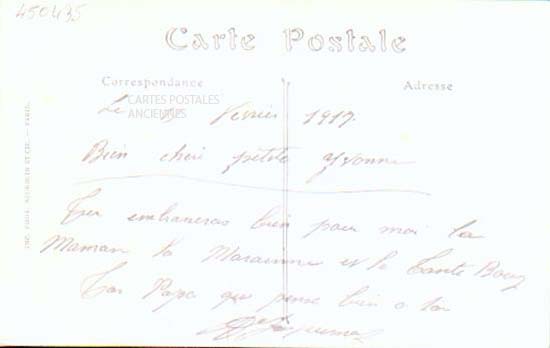 450435
Carte Postale
Correspondance
Adresse
CARTES POSTALES
ANCIENNES
Le Février 1917.
Bien cheri petite Yvonne
Tu embraceras bien pour moi ta
Maman ta Marainne et la Tante
Ton Papa qui pense bien a toi